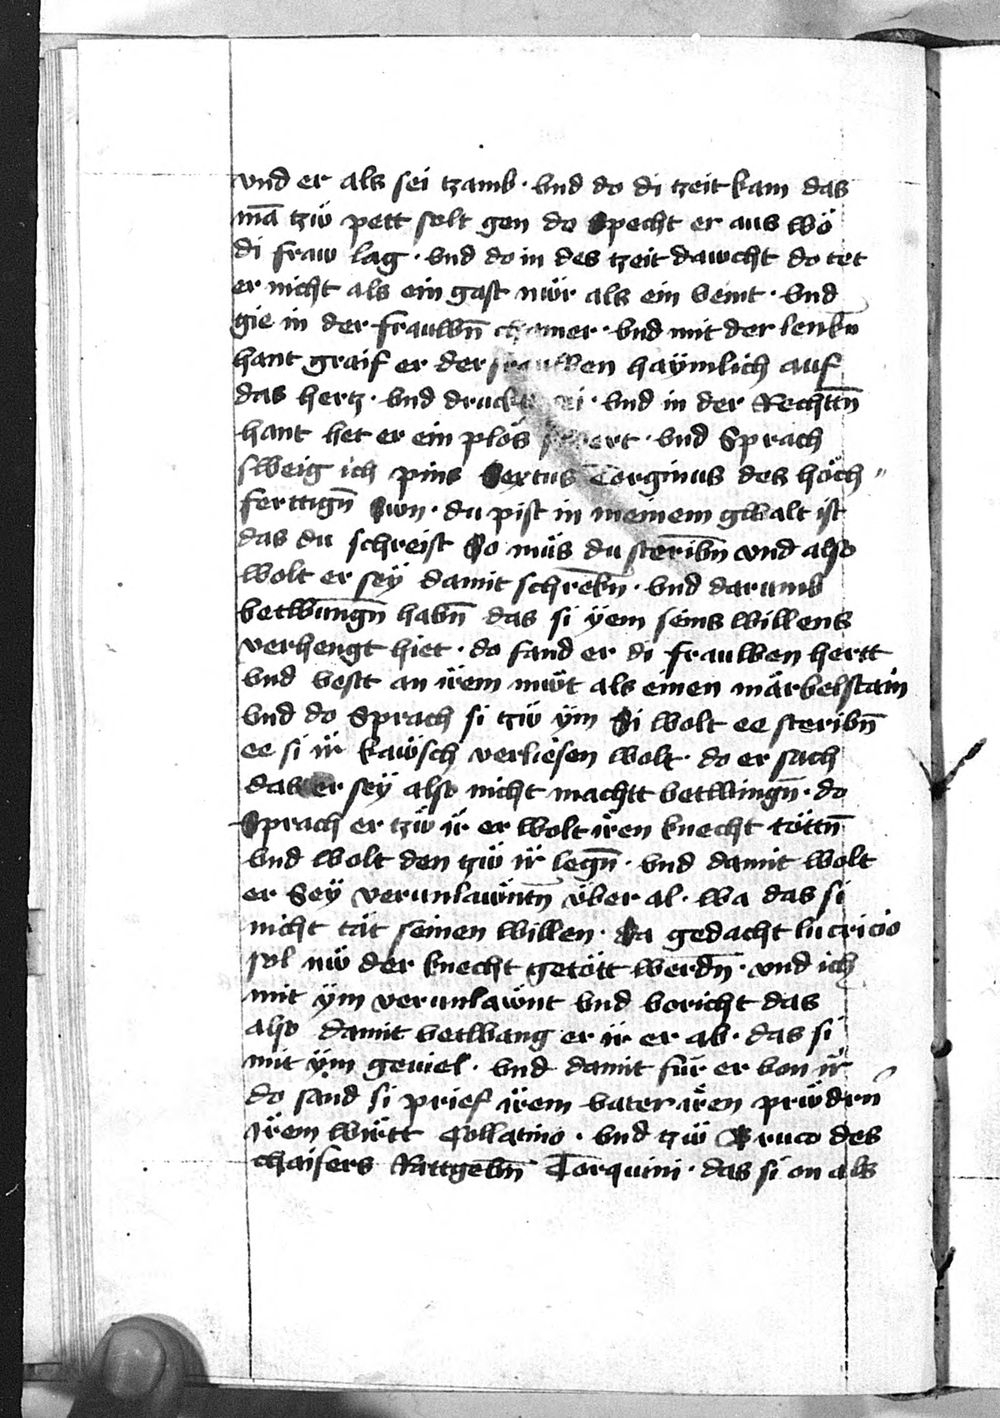 vnd er als sei tzamb · vnd do di tzeit kam das
mā tzŵ pett solt gen do Specht er aus wö
di fraw lag · vnd do in des tzeit dawcht do tet
er nicht als ein gast nŵr als ein veint · vnd
gie in der frauwn̄ chamer · vnd mit der lenkn̄
hant graif er der frauwen haÿmlich auf
das hertz · vnd druckt sei · vnd in der Rechttn̄
hant het er ein plös swert · vnd Sprach
sweig ich pins Sextus Torginus des höch〃
ferttign̄ Swn · du pist in meinem gwalt ist
das du schreist So müs du steribn̄ vnd also
wolt er seÿ damit schrekn̄ · vnd darumb
betwungn̄ habn̄ das si ÿem seins willens
verhengt hiet · do fand er di frauwen hertt
vnd vestt an ïrem mŵt als einen märbelstain
vnd do Sprach si tzŵ ÿm Si wolt ee steribn̄
ee si ïr kaẅsch verliesen wolt · do er sach
das er seÿ also nicht machtt betwingn̄ · do
Sprach er tzŵ ïr er wolt ïren knecht töttn̄
vnd wolt den tzŵ ïr legn̄ · vnd damit wolt
er Seÿ verunlawntn̄ über al · wa das si
nicht tät seinen willen · Da gedacht lucricio
sol nŵ der knecht getött werdn̄ · vnd ich
mit ÿm verunlawnt vnd voricht das
also damit betwang er ïr er ab · das si
mit ÿm geviel · vnd damit für er von ïr
do sand si prief ïrem vater ïren prẅdrn
ïrem wirtt Collatino · vnd tzŵ Bruco des
chaisers Rattgebn̄ Torquini · das si on als